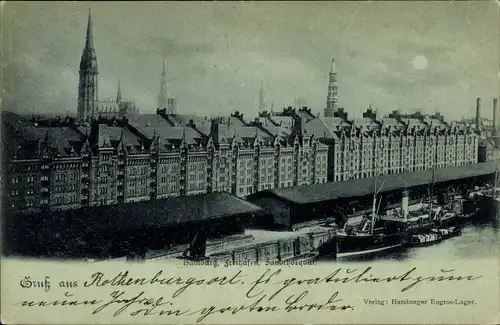 Hamburg, Freihafen, Sandthorquai.
Gruß aus Rothenburgsort. Es gratulirt zum
neuen Jahre
Verlag: Hamburger Engros-Lager.